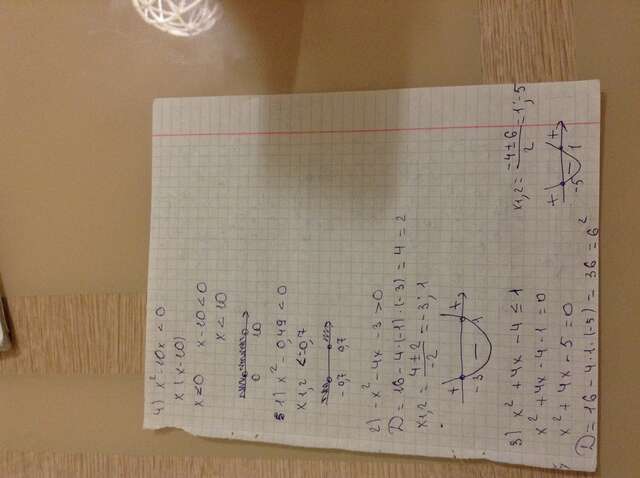 4) x² - 10x < 0
x (x-10)
x<0 x-10<0
x < 10
0 10
5 1) x² - 0,49 < 0
x 1,2 <-0,7
-0,7 0,7
2) -x² - 4x - 3 > 0
D = 16 - 4·(-1)·(-3) = 4 = 2
x1,2 = (4±2)/(-2) = -3; 1
+ - +
-3 1
3) x² + 4x - 4 ≤ 1
x² + 4x - 4 - 1 = 0
x² + 4x - 5 = 0
D = 16 - 4·1·(-5) = 36 = 6²
x1,2 = (-4±6)/2 = 1; -5
+ - +
-5 1